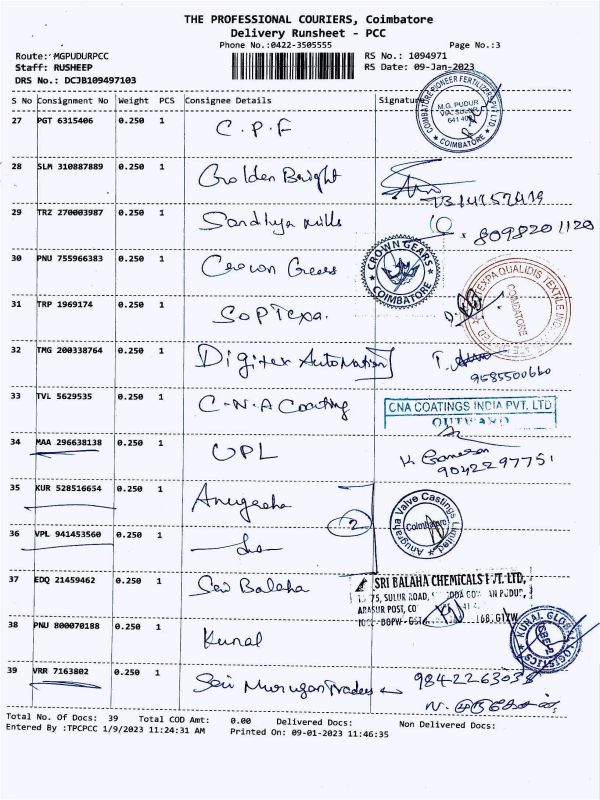 THE PROFESSIONAL COURIERS, Coimbatore
Delivery Runsheet - PCC
Phone No.:0422-3505555 Page No.:3
Route: MGPUDURPCC RS No.: 1094971
Staff: RUSHEEP RS Date: 09-Jan-2023
DRS No.: DCJB109497103
S No Consignment No Weight PCS Consignee Details Signature
COIMBATORE PIONEER FERTILIZERS PVT LTD
M.G. PUDUR
VIA. SULUR
COIMBATORE
27 PGT 6315406 0.250 1 C.P.F
28 SLM 310887889 0.250 1 Golden Bright
29 TRZ 270003987 0.250 1 Sandhya mills 8098201120
30 PNU 755966383 0.250 1 Crown Gears
CROWN GEARS
COIMBATORE
31 TRP 1969174 0.250 1 SOPTexa.
TEXPA QUALIDIS TEXTILE
32 TMG 200338764 0.250 1 Digitex Automation
9585500660
33 TVL 5629535 0.250 1 C-N-A Coating
CNA COATINGS INDIA PVT. LTD
OUTWARD
34 MAA 296638138 0.250 1 UPL K. Ganesan
9042297751
35 KUR 528516654 0.250 1 Anugraha
2
Anugraha Valve Castings Limited
Coimbatore
36 VPL 941453560 0.250 1
37 EDQ 21459462 0.250 1 Sri Balaha
SRI BALAHA CHEMICALS PVT. LTD,
75, SULUR ROAD,
ARASUR POST,
38 PNU 800070188 0.250 1 Kunal
KUNAL GLOBAL LOGISTICS
39 VRR 7163802 0.250 1 Sri Murugan Traders 9842263038
Total No. Of Docs: 39 Total COD Amt: 0.00 Delivered Docs: Non Delivered Docs:
Entered By :TPCPCC 1/9/2023 11:24:31 AM Printed On: 09-01-2023 11:46:35